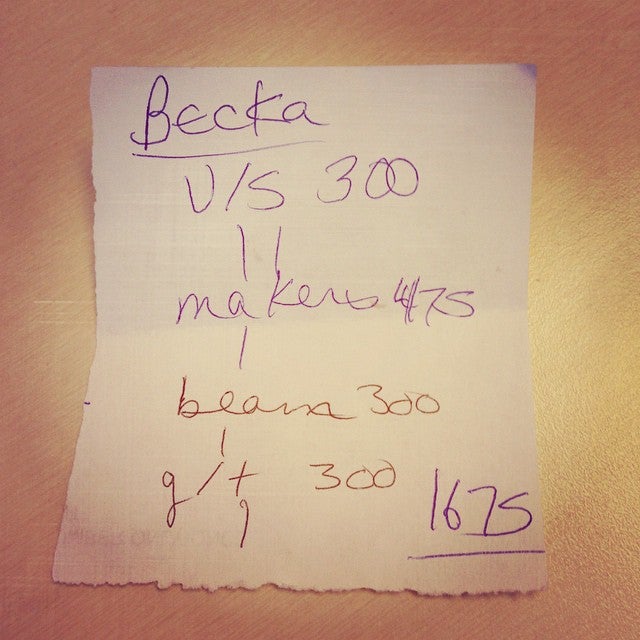 Becka
V/S 300
||
makers 475
|
beam 300
|
g/t 300
|
1675